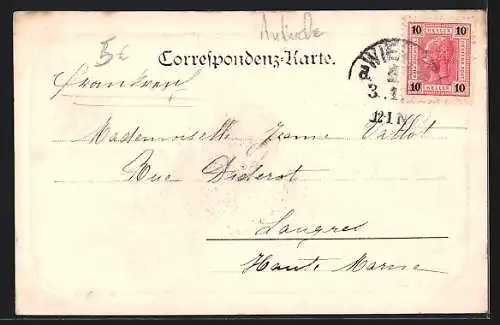 5€
Correspondenz-Karte.
WIEN
10 HELLER 10
10 HELLER 10
3. 1
12-1 N
Mademoiselle Jeanne
Rue Diderot
Langres
Haute Marne